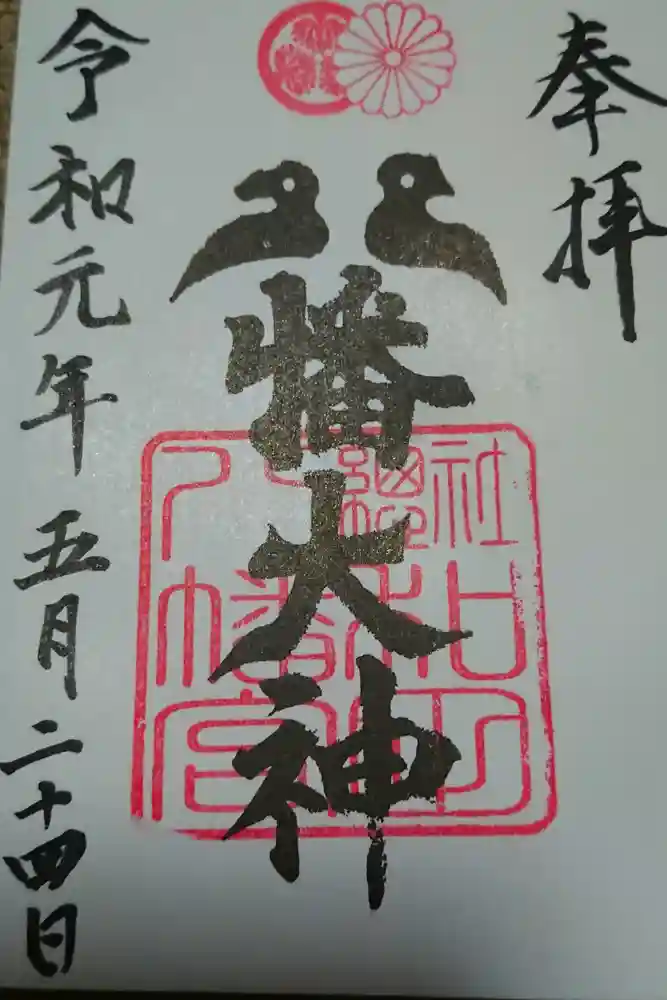 奉拝
八幡大神
總社
八幡宮
令和元年五月二十四日